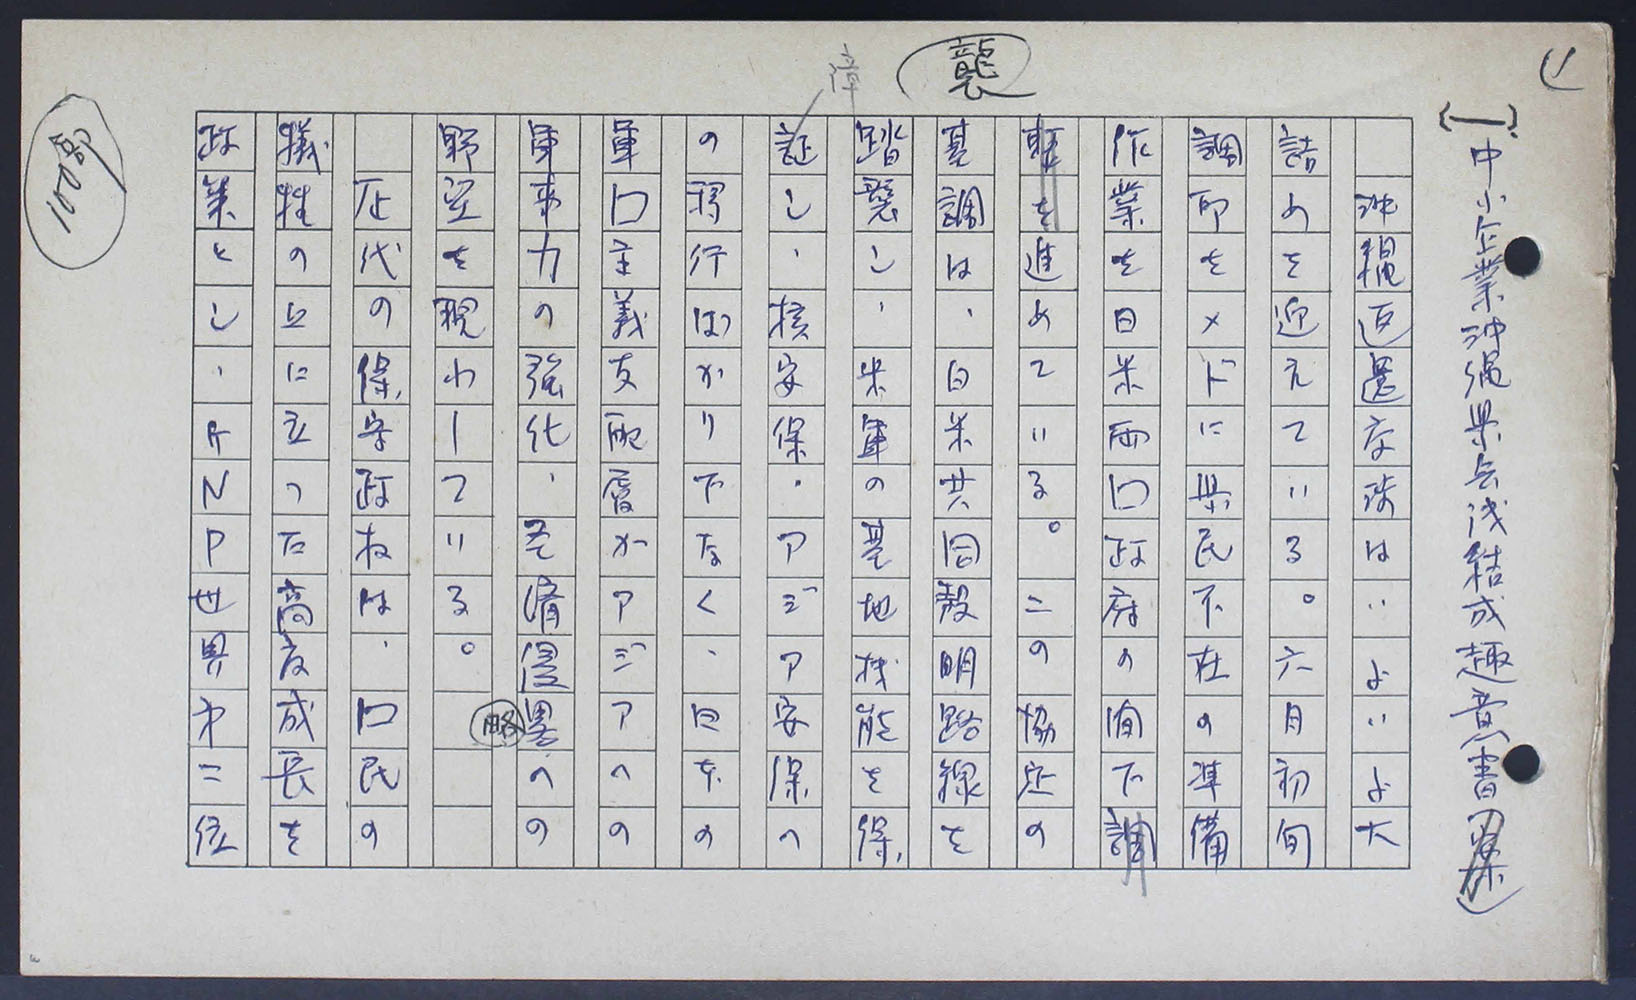 (1
(一)中小企業沖縄県兵没結成趣意書(案)
沖縄返還交渉はいよいよ大
詰めを迎えている。六月初旬
調印をメドに県民不在の準備
作業を日米両口政府の間で調
整を進めている。この協定の
基調は、日米共同声明路線を
踏襲し、米軍の基地機能を保
証し、核安保・アジア安保へ
の移行ばかりでなく、日本の
軍口主義支配層がアジアへの
軍事力の強化、経済侵略への
野望を現わしている。
歴代の保守政权は、口民の
犠牲の上に立つた高度成長を
政策とし、GNP世界才二位
襲
障
略
100部